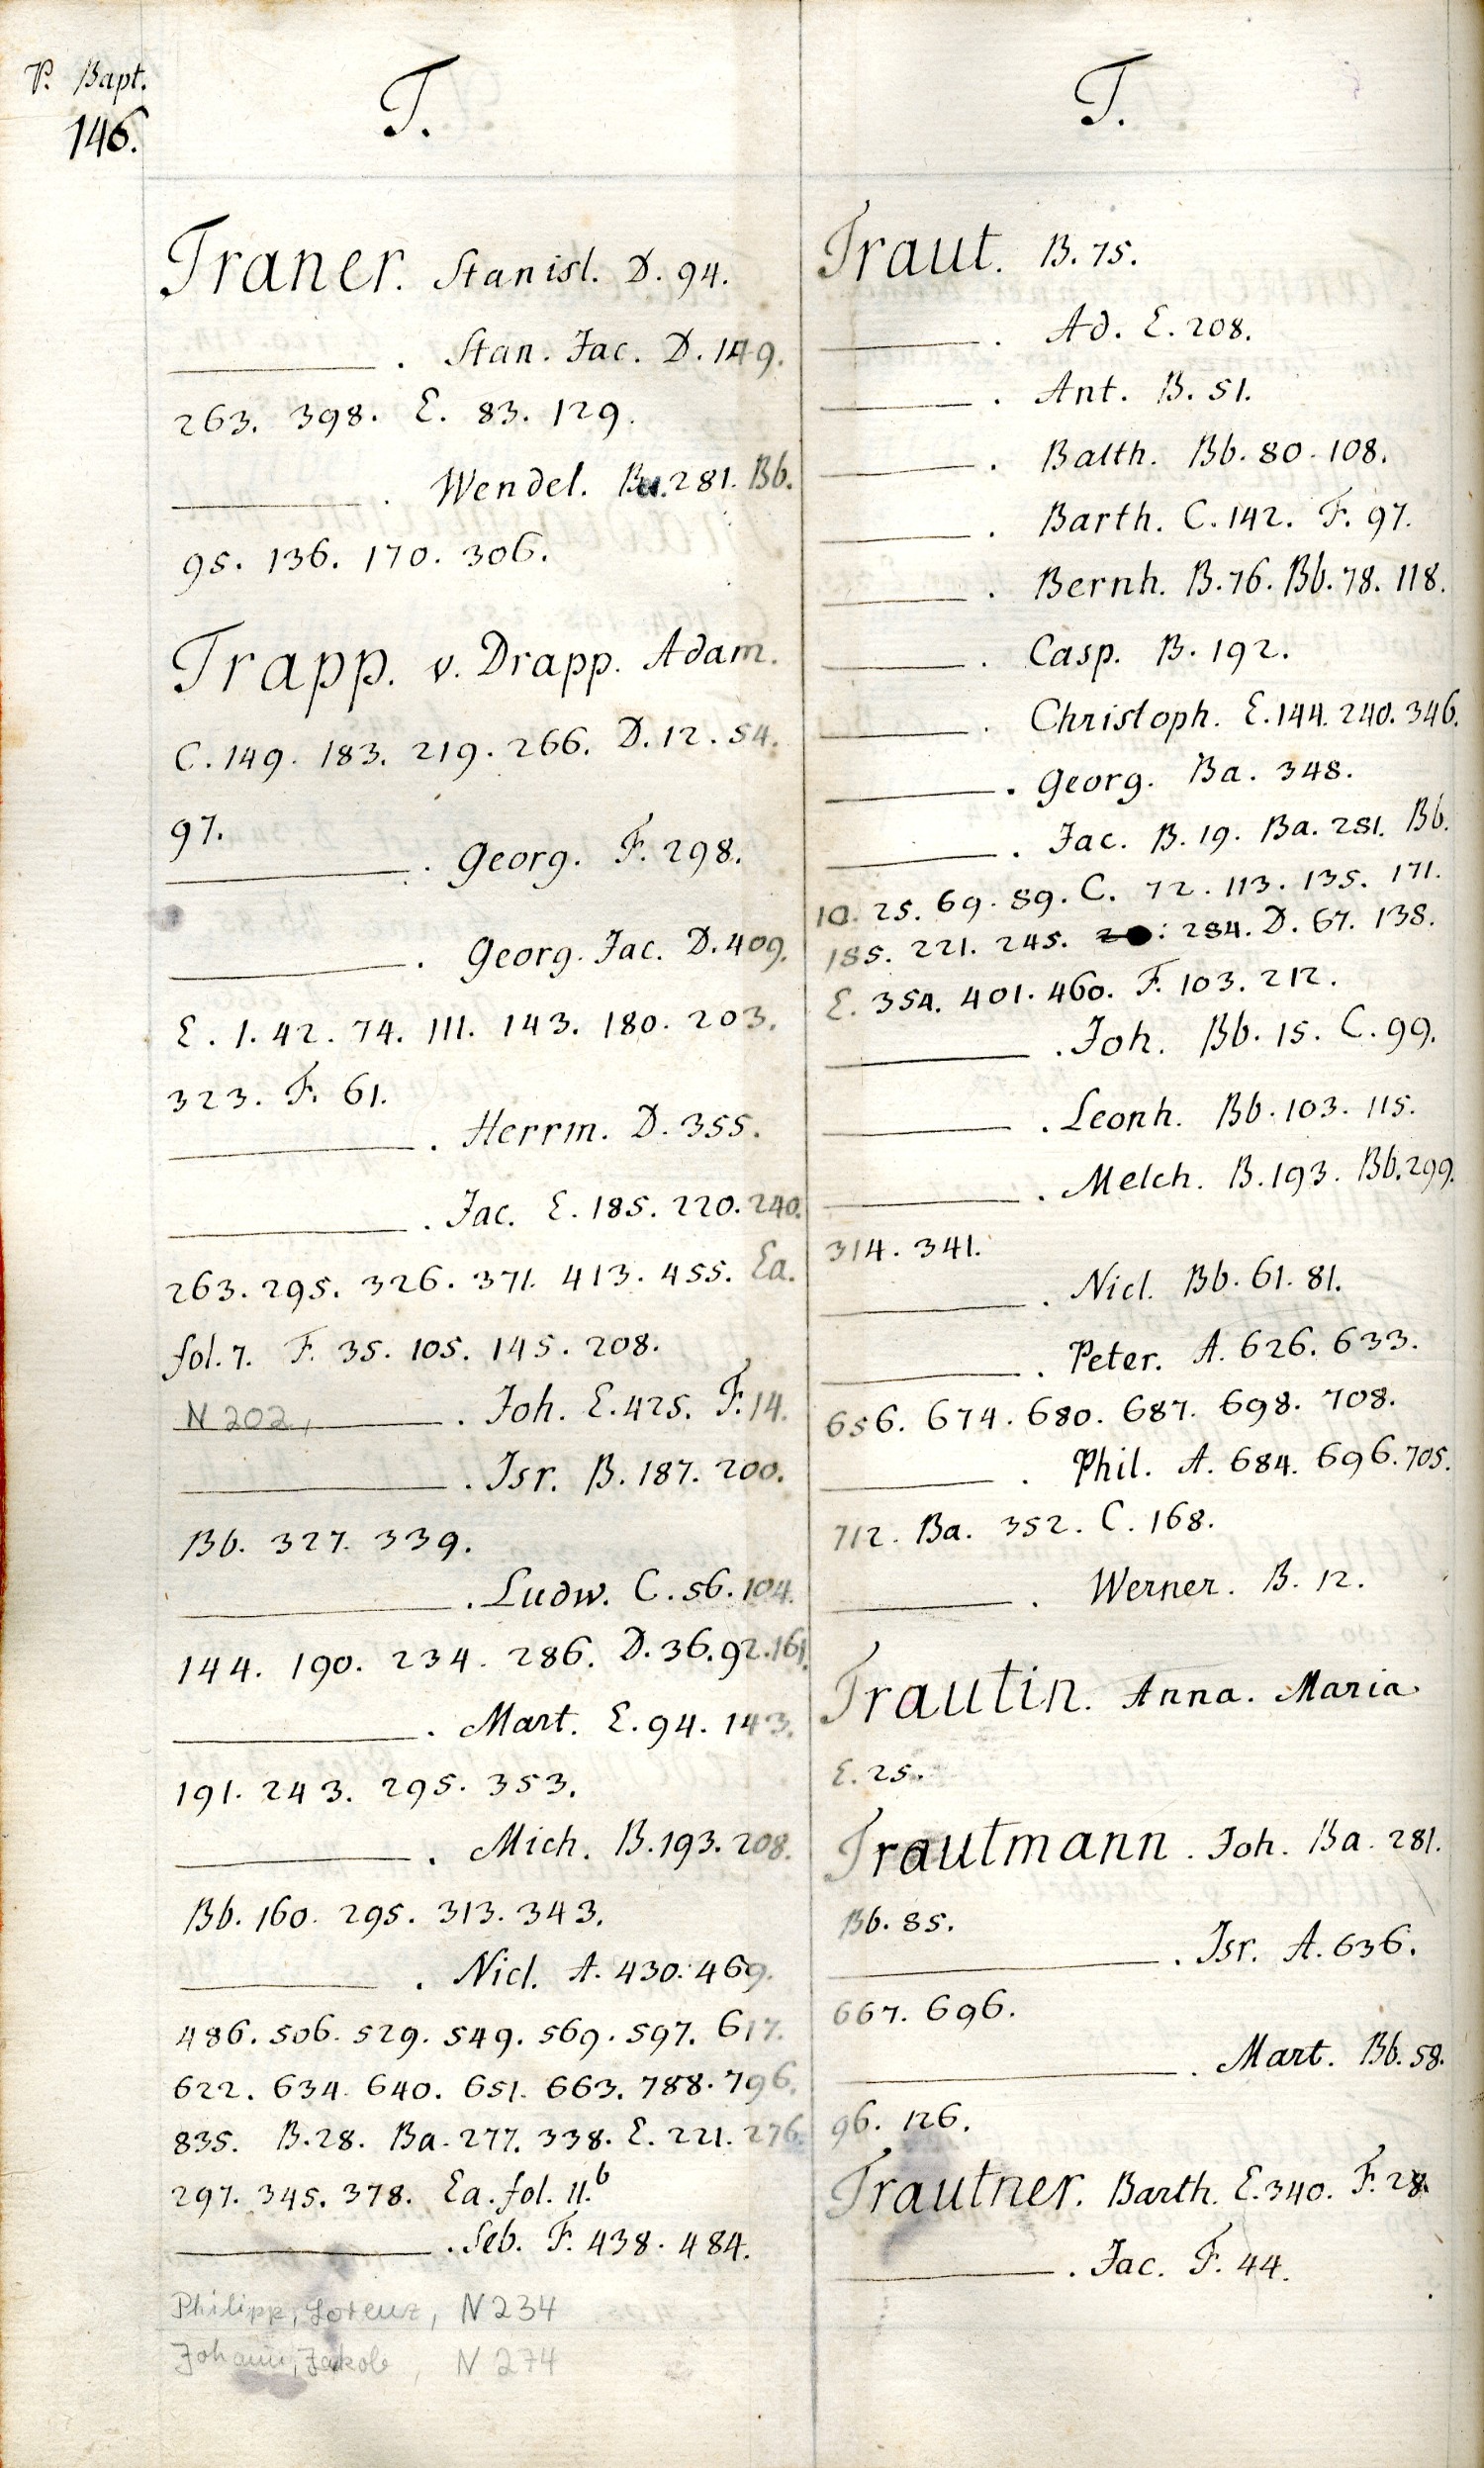 P. Bapt.
146.
T.
Traner. Stanisl. D. 94.
. Stan. Jac. D. 149.
263. 398. E. 83. 129.
. Wendel. Ba. 281. Bb.
95. 136. 170. 306.
Trapp. v. Drapp. Adam.
C. 149. 183. 219. 266. D. 12. 54.
97.
. Georg. F. 298.
. Georg. Jac. D. 409.
E. 1. 42. 74. 111. 143. 180. 203.
323. F. 61.
. Herrm. D. 355.
. Jac. E. 185. 220. 240.
263. 295. 326. 371. 413. 455. Ea.
fol. 7. F. 35. 105. 145. 208.
N 202, . Joh. E. 425. F. 14.
. Isr. B. 187. 200.
Bb. 327. 339.
. Ludw. C. 56. 104.
144. 190. 234. 286. D. 36. 92. 161.
. Mart. E. 94. 143.
191. 243. 295. 353.
. Mich. B. 193. 208.
Bb. 160. 295. 313. 343.
. Nicl. A. 430. 469.
486. 506. 529. 549. 569. 597. 617.
622. 634. 640. 651. 663. 788. 796.
835. B. 28. Ba. 277. 338. E. 221. 276.
297. 345. 378. Ea. fol. 11.b
. Seb. F. 438. 484.
Philipp, Lorenz, N 234
Johann, Jakob, N 274
T.
Traut. B. 75.
. Ad. E. 208.
. Ant. B. 51.
. Balth. Bb. 80. 108.
. Barth. C. 142. F. 97.
. Bernh. B. 76. Bb. 78. 118.
. Casp. B. 192.
. Christoph. E. 144. 240. 346.
. Georg. Ba. 348.
. Jac. B. 19. Ba. 281. Bb.
10. 25. 69. 89. C. 72. 113. 135. 171.
185. 221. 245. 284. D. 67. 138.
E. 354. 401. 460. F. 103. 212.
. Joh. Bb. 15. C. 99.
. Leonh. Bb. 103. 115.
. Melch. B. 193. Bb. 299.
314. 341.
. Nicl. Bb. 61. 81.
. Peter. A. 626. 633.
656. 674. 680. 687. 698. 708.
. Phil. A. 684. 696. 705.
712. Ba. 352. C. 168.
. Werner. B. 12.
Trautin. Anna. Maria
E. 25.
Trautmann. Joh. Ba. 281.
Bb. 85.
. Isr. A. 636.
667. 696.
. Mart. Bb. 58.
96. 126.
Trautner. Barth. E. 340. F. 28.
. Jac. F. 44.